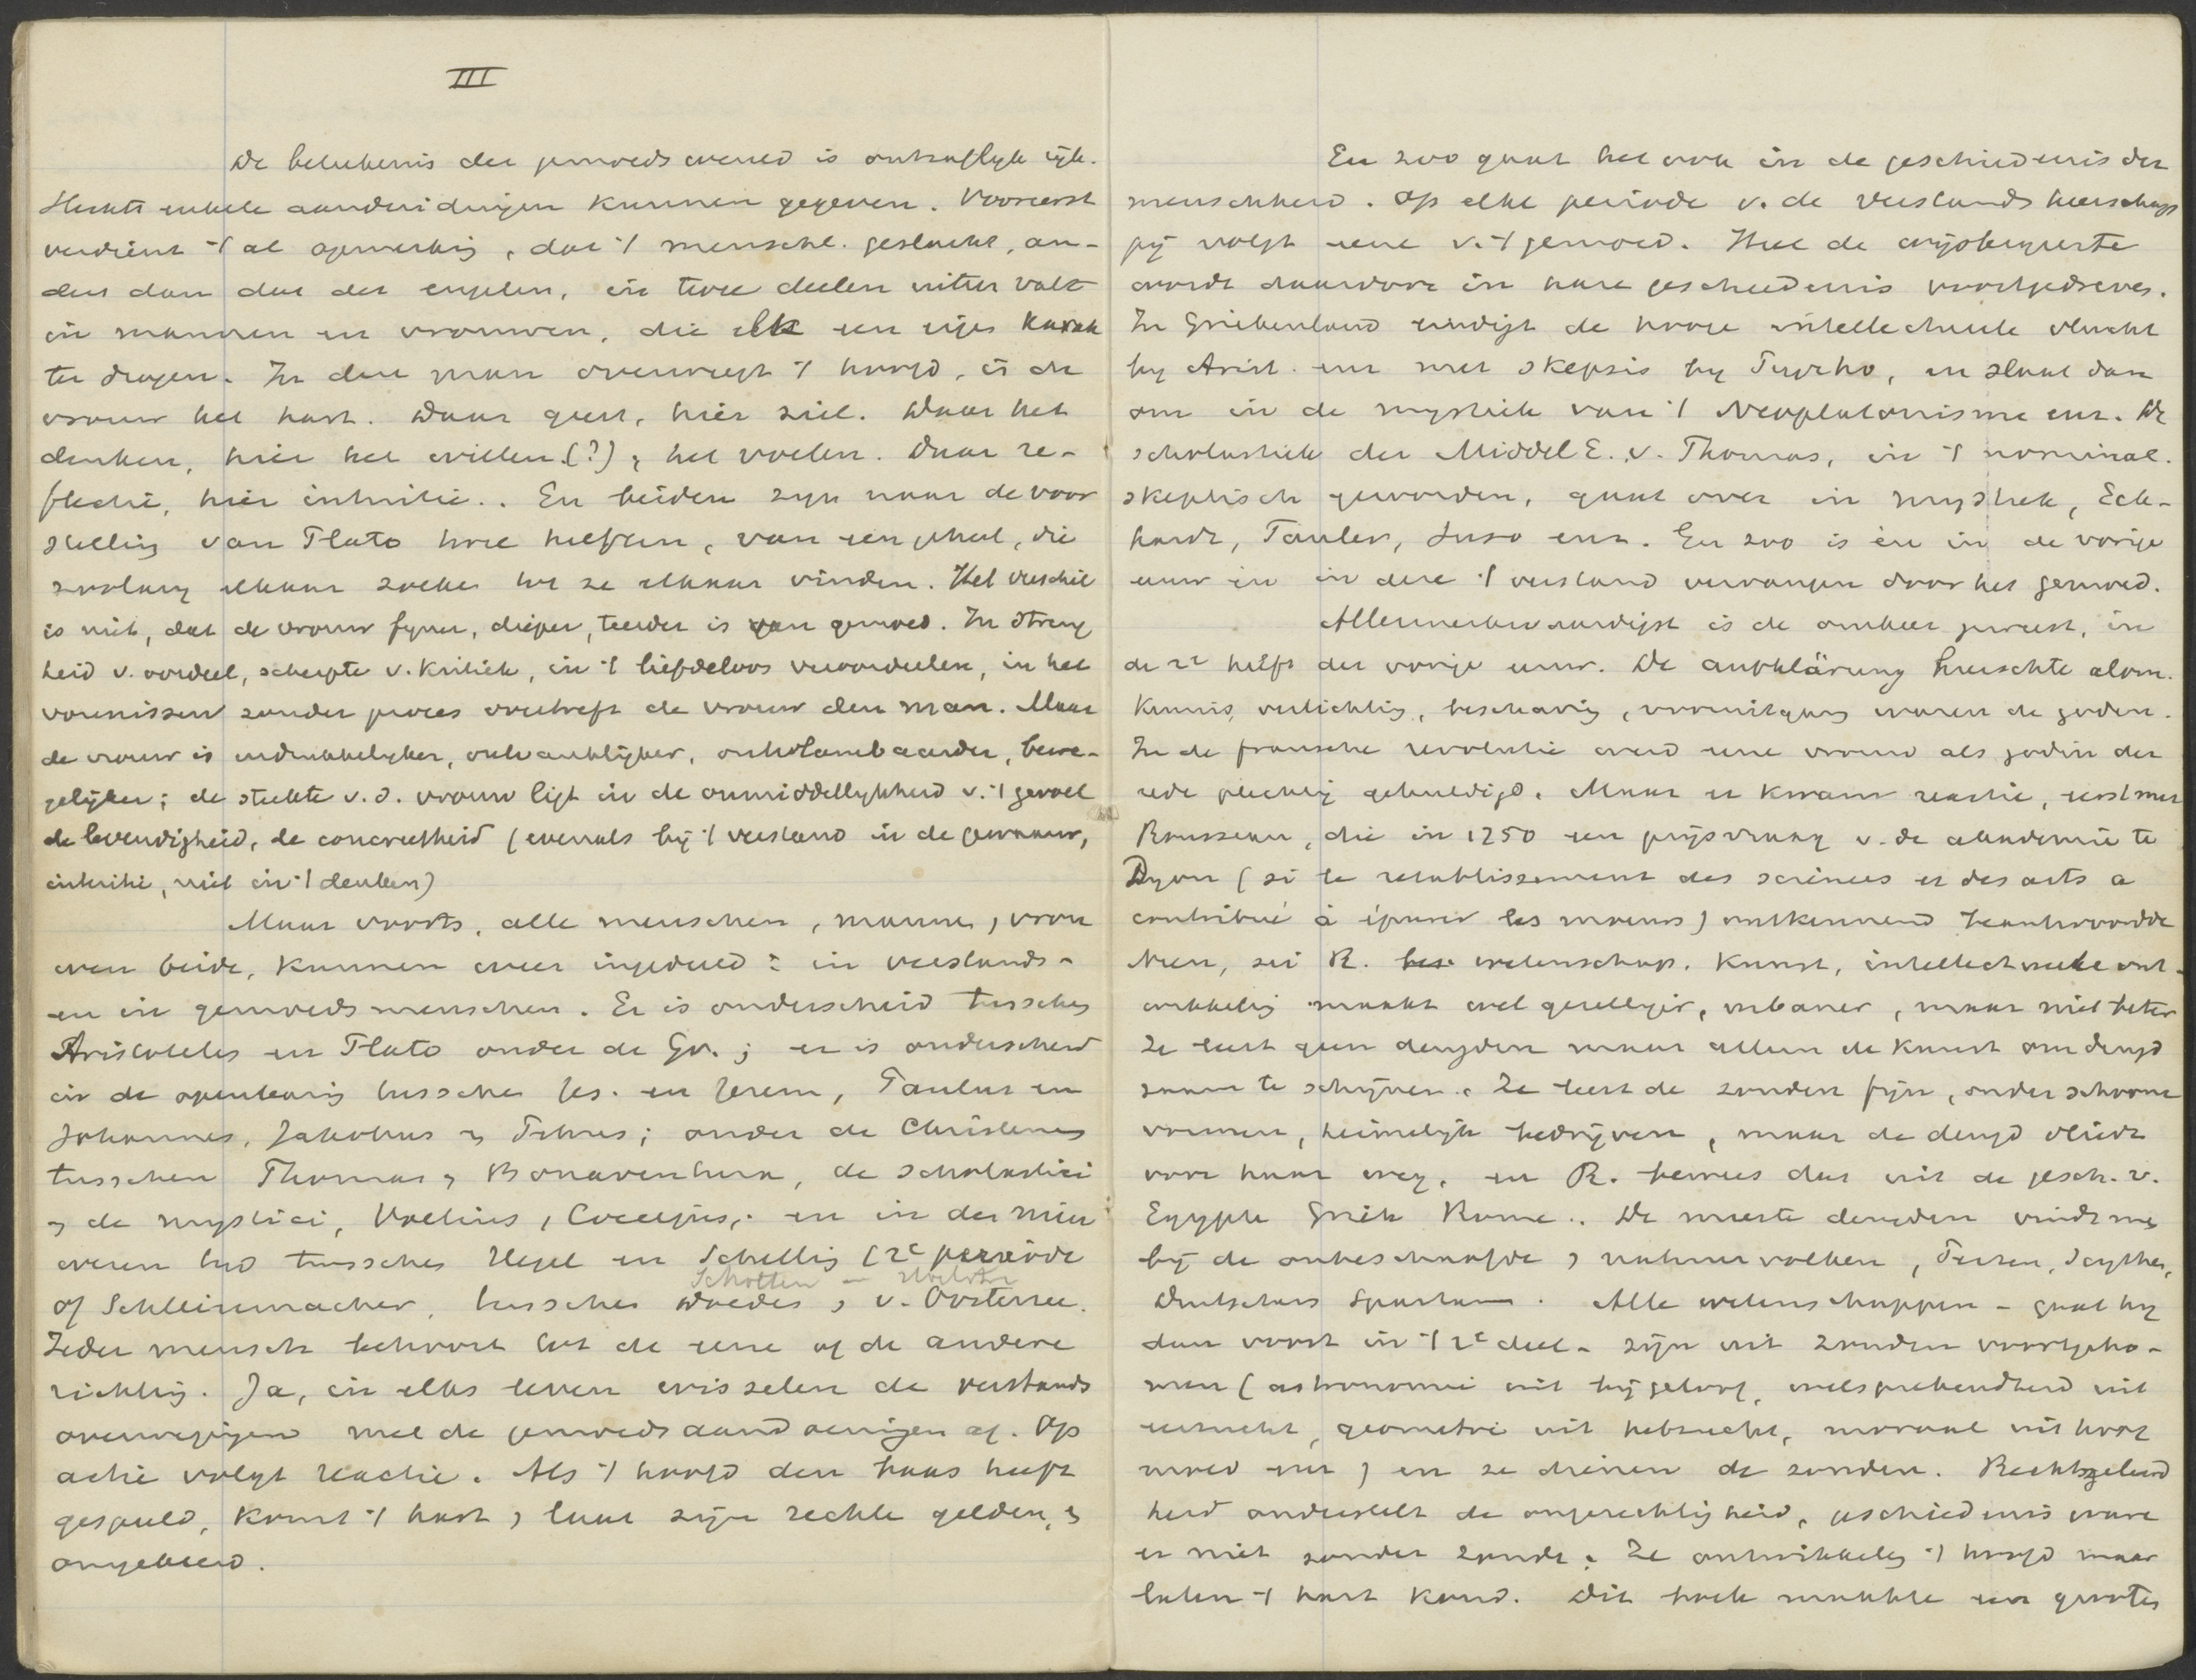 III
De beteekenis der gemoedswereld is ontzaglijk rijk.
Slechts enkele aanduidingen kunnen gegeven. Vooreerst
verdient 't al opmerking, dat 't menschl. geslacht, an-
ders dan dat der engelen, in twee deelen uiteen valt
in mannen en vrouwen, die elk een eigen karak
ter dragen. In den man overweegt 't hoofd, in de
vrouw het hart. Daar geest, hier ziel. Daar het
denken, hier het willen (?), het voelen. Daar re-
flectie, hier intuitie.. En beiden zijn naar de voor
stelling van Plato twee helften, van een geheel, die
zoolang elkaar zoeken tot ze elkaar vinden. Het verschil
is niet, dat de vrouw fijner, dieper, teerder is van gemoed. In streng
heid v. oordeel, scherpte v. kritiek, in 't liefdeloos veroordeelen, in het
vonnissen zonder proces overtreft de vrouw den man. Maar
de vrouw is indrukkelijker, ontvankelijker, ontvlambaarder, bewe-
gelijker; de sterkte v.d. vrouw ligt in de onmiddellijkheid v. 't gevoel
de levendigheid, de concreetheid (evenals bij 't verstand in de gewaarw,
intuitie, niet in 't denken)
Maar voorts, alle menschen, mannen, vrou
wen beide, kunnen weer ingedeeld: in verstands-
en in gemoedsmenschen. Er is onderscheid tusschen
Aristoteles en Plato onder de Gr.; er is onderscheid
in de openbaring tusschen Jes. en Jerem, Paulus en
Johannes, Jakobus en Petrus; onder de Christenen
tusschen Thomas en Bonaventura, de scholastici
en de mystici, Voetius, Coccejus,. en in den nieu
weren tijd tusschen Hegel en Schelling (2e periode
Scholten
of Schleiermacher, tusschen Doedes, v. Oosterzee.
Ieder mensch behoort tot de eene of de andere
richting. Ja, in elks leven wisselen de verstands
overwegingen met de gemoedsaandoeningen af. Op
actie volgt reactie. Als 't hoofd den baas heeft
gespeeld, komt 't hart, laat zijn rechten gelden, en
omgekeerd.
En zoo gaat het ook in de geschiedenis der
menschheid. Op elke periode v. de verstandsheerschap
pij volgt eene v. 't gemoed. Heel de wijsbegeerte
wordt daardoor in hare geschiedenis voortgedreven.
In Griekenland eindigt de hooge intellectueele vlucht
bij Arist. enz met skepsis bij Pyrrho, en slaat dan
om in de mystiek van 't Neoplatonisme enz. De
scholastiek der Middel E. v. Thomas, in 't nominal.
skeptisch geworden, gaat over in mystiek, Eck-
hardt, Tauler, Suso enz. En zoo is en in de vorige
eeuw en in deze 't verstand vervangen door het gemoed.
Allermerkwaardigst is de omkeer geweest, in
de 2e helft der vorige eeuw. De aufklärung heerschte alom.
Kennis, verlichting, beschaving, vooruitgang waren de goden.
In de fransche revolutie werd eene vrouw als godin der
rede plechtig gehuldigd. Maar er kwam reactie, eerst met
Rousseau, die in 1750 een prijsvraag v. de akademie te
Dyon (si le rétablissement des sciences et des arts a
contribué à épurer les moeurs) ontkennend beantwoordde
Neen, zei R. wetenschap. Kunst, intellectueele ont-
wikkeling maakt wel gezelliger, urbaner, maar niet beter
Ze leert geen deugden maar alleen de kunst om deugd
zaam te schijnen. Ze leert de zonden fijn, onder schoone
vormen, heimelijk bedrijven, maar de deugd vliedt
voor haar weg, en R. bewees dat uit de gesch. v.
Egypte Griek Rome.. De meeste deugden vindt men
bij de onbeschaafde, natuurvolken, Perzen, Scythen,
Duitschers Spartanen. Alle wetenschappen - gaat hij
dan voort in 't 2e deel - zijn uit zonden voortgeko-
men (astronomie uit bijgeloof, welsprekendheid uit
eerzucht, geometrie uit hebzucht, moraal uit hoog
moed enz) en ze dienen de zonden. Rechtsgeleerd
heid onderstelt de ongerechtigheid, geschiedenis ware
er niet zonder zonde. Ze ontwikkelen 't hoofd maar
laten 't hart koud. Dit boek maakte een grooten